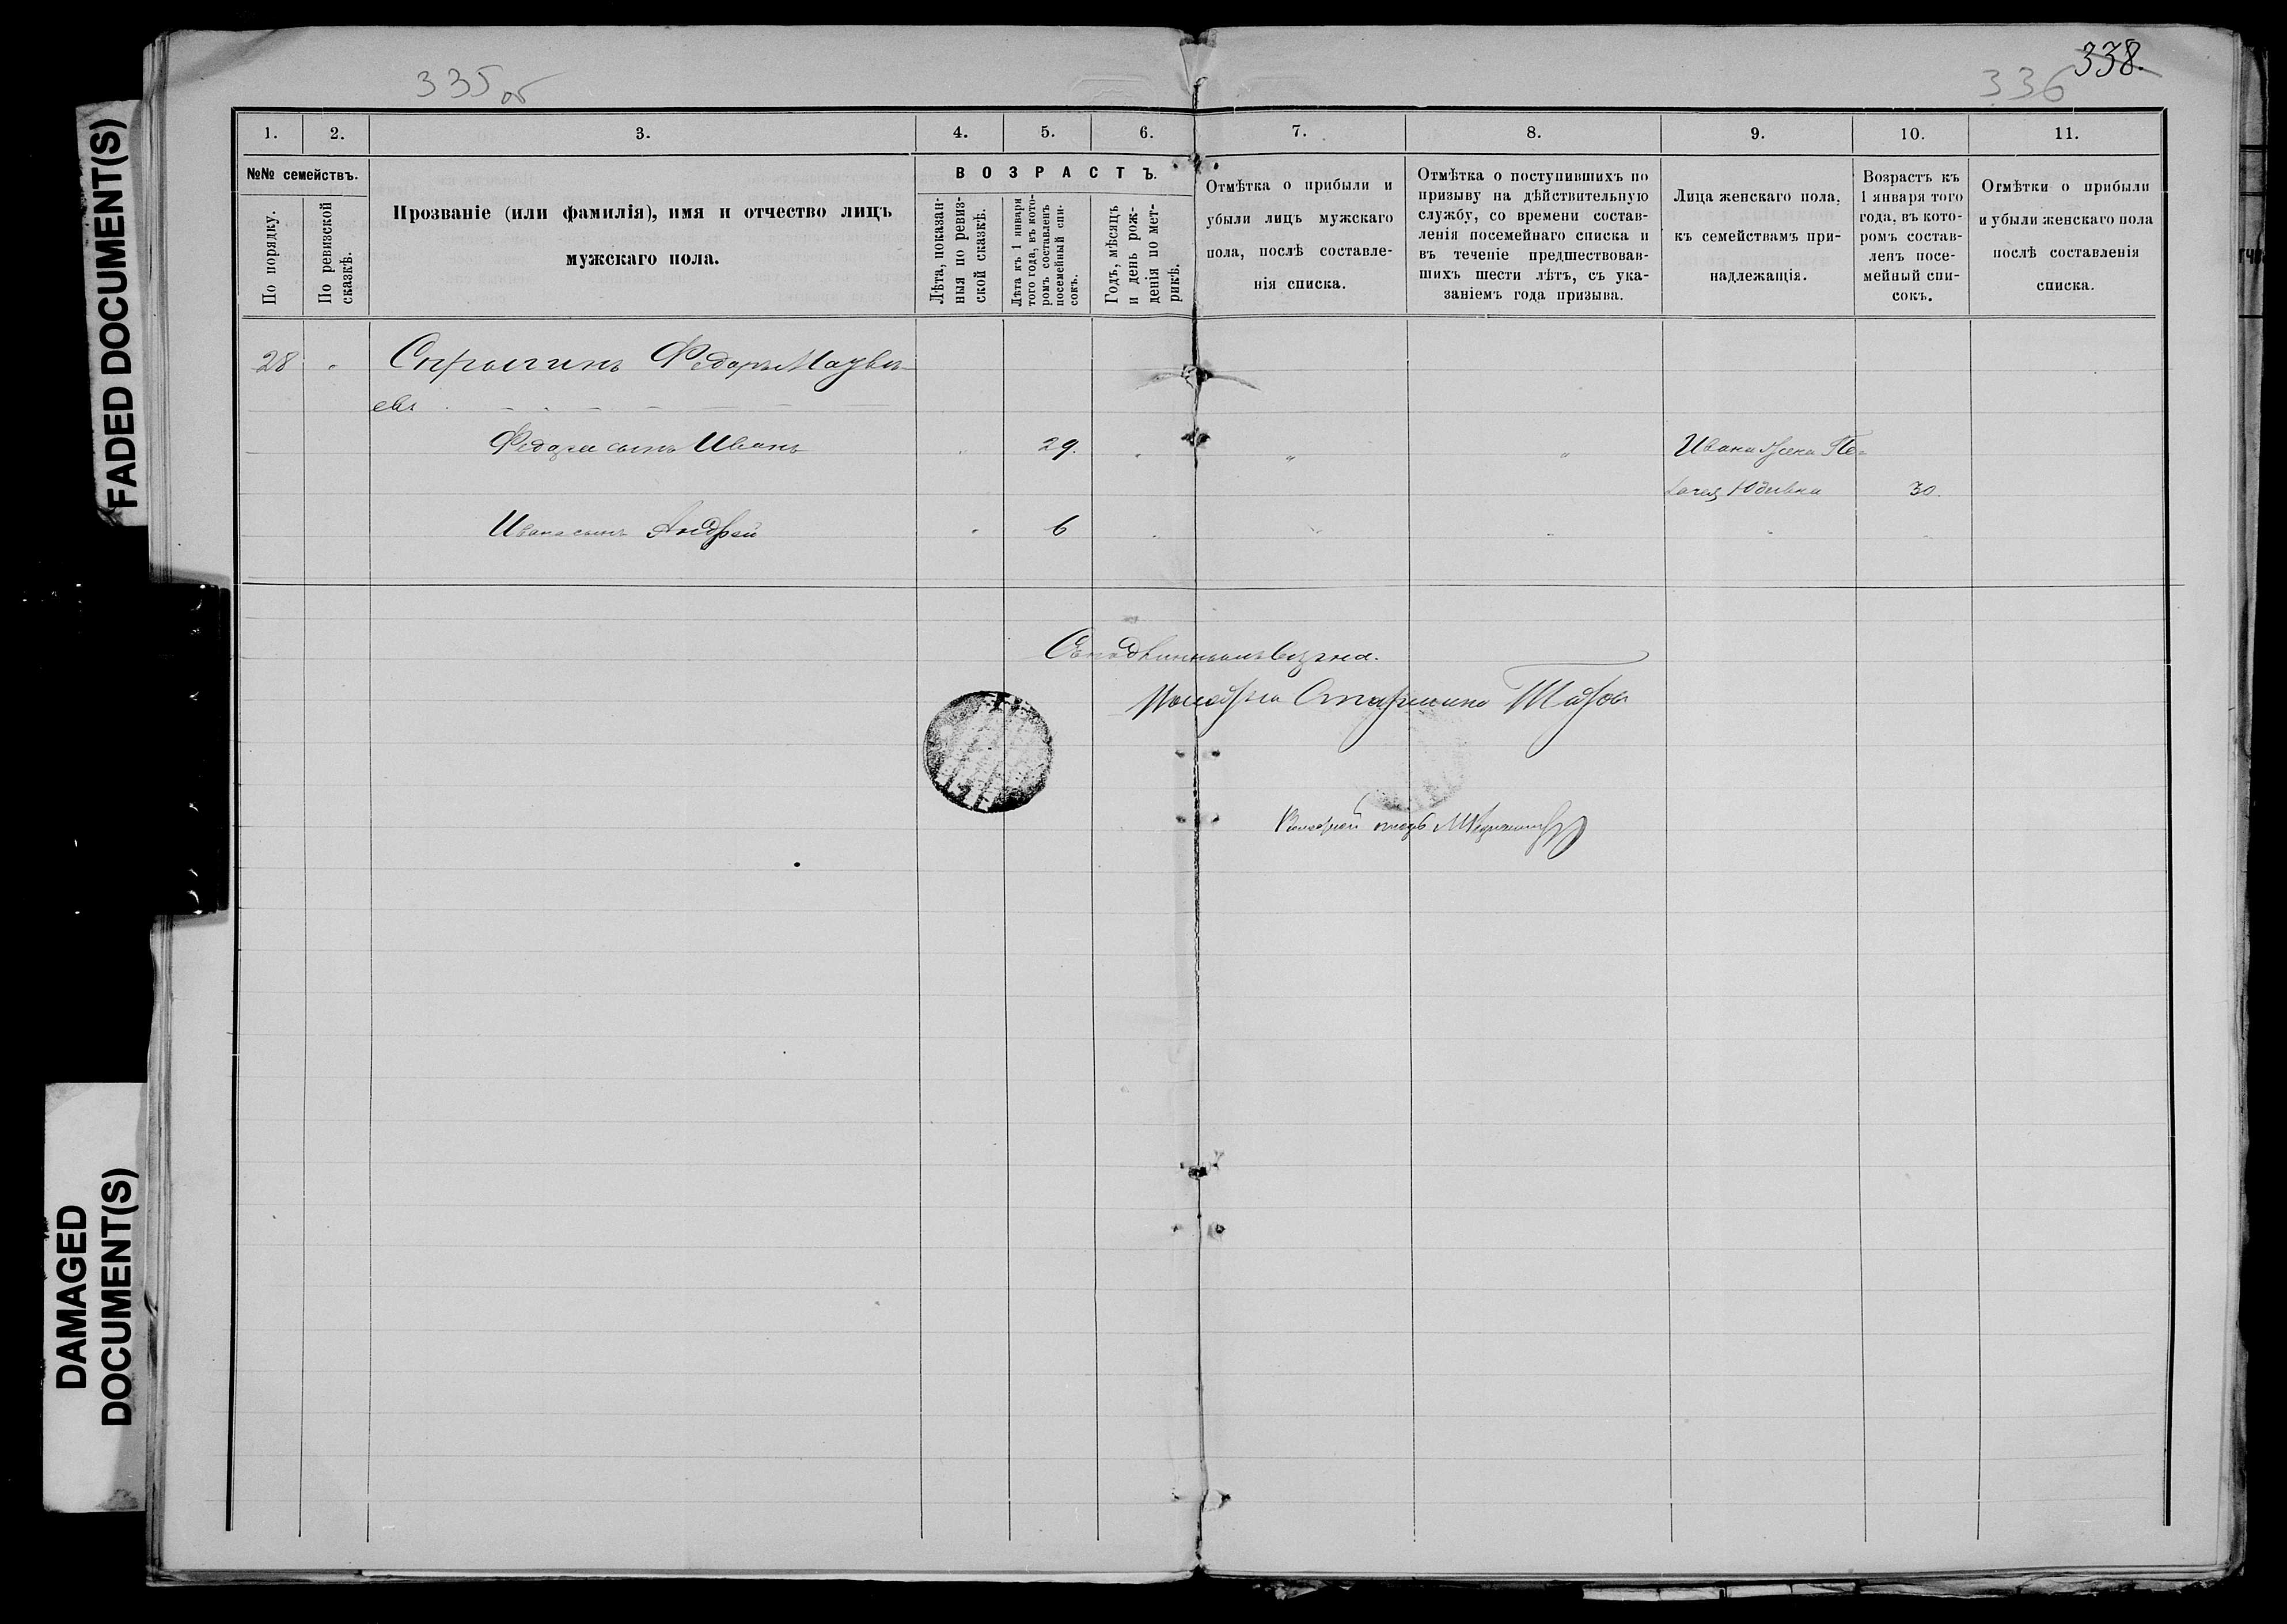 FADED DOCUMENT(S)
DAMAGED
DOCUMENT(S)
335 об
338.
336
1. 2. 3. 4. 5. 6. 7. 8. 9. 10. 11.
№№ семействъ.
По порядку.
По ревизской
сказкѣ.
Прозваніе (или фамилія), имя и отчество лицъ
мужскаго пола.
ВОЗРАСТЪ.
Лѣта, показан-
ныя по ревиз-
ской сказкѣ.
Лѣта къ 1 января
того года, въ кото-
ромъ составленъ
посемейный спи-
сокъ.
Годъ, мѣсяцъ
и день рож-
денія по мет-
рикѣ.
Отмѣтка о прибыли и
убыли лицъ мужскаго
пола, послѣ составле-
нія списка.
Отмѣтка о поступившихъ по
призыву на дѣйствительную
службу, со времени состав-
ленія посемейнаго списка и
въ теченіе предшествовав-
шихъ шести лѣтъ, съ ука-
заніемъ года призыва.
Лица женскаго пола,
къ семействамъ при-
надлежащія.
Возрастъ къ
1 января того
года, въ кото-
ромъ состав-
ленъ посе-
мейный спи-
сокъ.
Отмѣтки о прибыли
и убыли женскаго пола
послѣ составленія
списка.
28 " Федоръ
евъ
Федора сынъ Иванъ " 29. " " " Ивана жена Пе-
30.
Ивана сынъ Андрей " 6 " " " " "
Съ подлиннымъ вѣрно.
Волостной Старшина
Волостной писарь